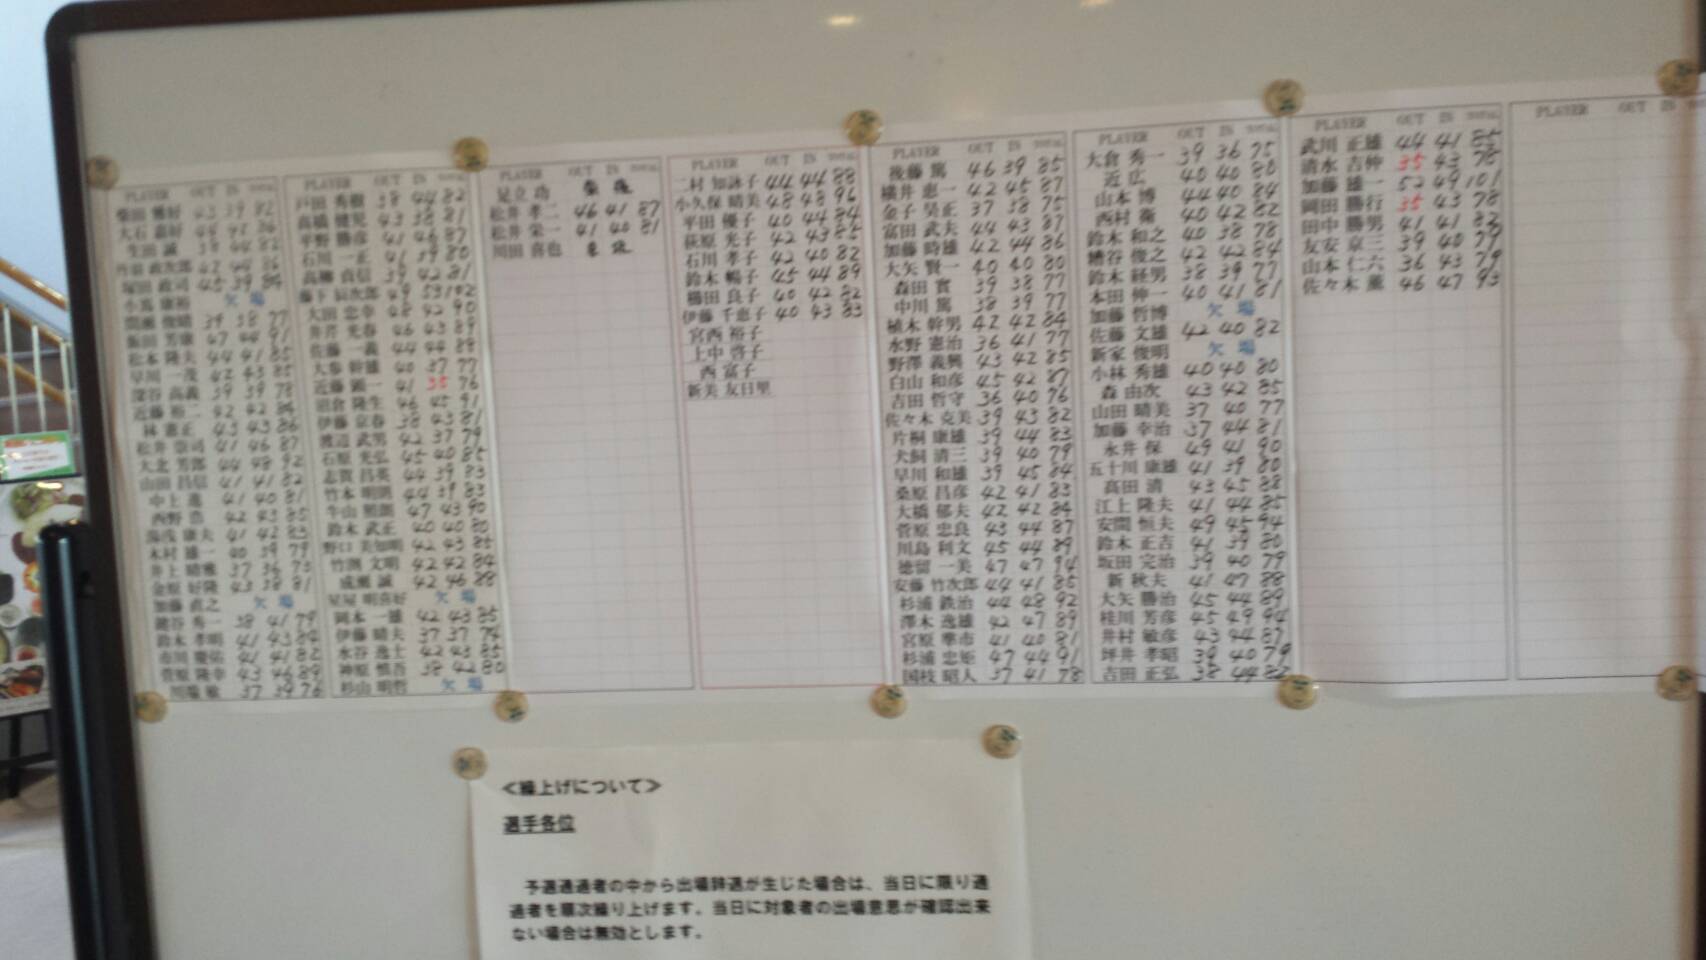 PLAYER OUT IN TOTAL
柴田 雅好 43 39 82
大石 嘉好
生田 誠 38 44 82
塚田 政司 45 39 84
小馬 康裕 欠 場
間瀬 俊晴 39 38 77
飯田 芳康 47 44 91
松本 隆夫 44 41 85
早川 一茂 42 43 85
深谷 高義 39 39 78
近藤 裕二 42 42 84
林 憲正 43 43 86
松井 崇司 41 46 87
大北 芳郎 44 48 92
山田 昌信 41 41 82
中上 進 41 40 81
西野 浩 42 43 85
湯浅 康夫 41 42 83
木村 雄一 40 39 79
井上 晴雅 37 36 73
金原 好隆 43 38 81
加藤 直之 欠 場
鍵谷 秀一 38 41 79
鈴木 孝明 41 43 84
市川 慶佑 41 41 82
菅原 隆幸 43 46 89
川端 敏 37 39 76
PLAYER OUT IN TOTAL
戸田 秀樹 38 44 82
高橋 健児 43 38 81
平野 勝彦 41 46 87
石川 一正 41 39 80
高柳 貞信 39 42 81
藤下 辰次郎 49 53 102
大田 忠幸 48 42 90
井芹 光春 46 43 89
佐藤 一義 44 44 88
大参 幹雄 40 37 77
近藤 顕一 41 35 76
沼倉 隆生 46 45 91
伊藤 京春 38 43 81
渡辺 武男 42 37 79
石原 光弘 45 40 85
志賀 昌英 44 39 83
竹本 明則 44 39 83
牛山 照朗 47 43 90
鈴木 武正 40 40 80
野口 美知明 42 43 85
竹渕 文明 42 42 84
成瀬 誠 42 46 88
星屋 明喜好 欠 場
岡本 一雄 42 43 85
伊藤 晴夫 37 37 74
水谷 逸士 42 43 85
神原 慎吾 38 42 80
杉山 明哲 欠 場
PLAYER OUT IN TOTAL
足立 功
松井 孝二 46 41 87
松井 栄一 41 40 81
川田 喜也
PLAYER OUT IN TOTAL
二村 知詠子 44 44 88
小久保 晴美 48 48 96
平田 優子 40 44 84
荻原 光子 42 43 85
石川 孝子 42 40 82
鈴木 暢子 45 44 89
櫛田 良子 40 42 82
伊藤 千恵子 40 43 83
宮西 裕子
上中 啓子
西 富子
新美 友日里
PLAYER OUT IN TOTAL
後藤 篤 46 39 85
横井 恵一 42 45 87
金子 昊正 37 38 75
富田 武夫 44 43 87
加藤 時雄 42 44 86
大矢 賢一 40 40 80
森田 實 39 38 77
中川 篤 38 39 77
植木 幹男 42 42 84
水野 憲治 36 41 77
野澤 義興 43 42 85
白山 和彦 45 42 87
吉田 哲守 36 40 76
佐々木 克美 39 43 82
片桐 康雄 39 44 83
犬飼 清三 39 40 79
早川 和雄 39 45 84
桑原 昌彦 42 41 83
大橋 郁夫 42 42 84
菅原 忠良 43 44 87
川島 利文 45 44 89
徳留 一美 47 47 94
安藤 竹次郎 44 41 85
杉浦 鉄治 44 48 92
澤木 逸雄 42 47 89
宮原 準市 41 40 81
杉浦 忠姫 47 44 91
国枝 昭人 37 41 78
PLAYER OUT IN TOTAL
大倉 秀一 39 36 75
近 広 40 40 80
山本 博 44 40 84
西村 衛 40 42 82
鈴木 和之 40 38 78
糟谷 俊之 42 42 84
鈴木 経男 38 39 77
本田 伸一 40 41 81
加藤 哲博 欠 場
佐藤 文雄 42 40 82
新家 俊明 欠 場
小林 秀雄 40 40 80
森 由次 43 42 85
山田 晴美 37 40 77
加藤 幸治 37 44 81
永井 保 49 41 90
五十川 康雄 41 39 80
高田 清 43 45 88
江上 隆夫 41 44 85
安間 恒夫 49 45 94
鈴木 正吉 41 39 80
坂田 完治 39 40 79
新 秋夫 41 47 88
大矢 勝治 45 44 89
桂川 芳彦 45 49 94
井村 敏彦 43 44 87
坪井 孝昭 39 40 79
吉田 正弘 38 44 82
PLAYER OUT IN TOTAL
武川 正雄 44 41 85
清水 吉仲 35 43 78
加藤 雄一 52 49 101
岡田 勝行 35 43 78
田中 勝男 41 41 82
友安 京三 39 40 79
山本 仁六 36 43 79
佐々木 薫 46 47 93
PLAYER OUT IN
≪繰上げについて≫
選手各位
予選通過者の中から出場辞退が生じた場合は、当日に限り通
過者を順次繰り上げます。当日に対象者の出場意思が確認出来
ない場合は無効とします。